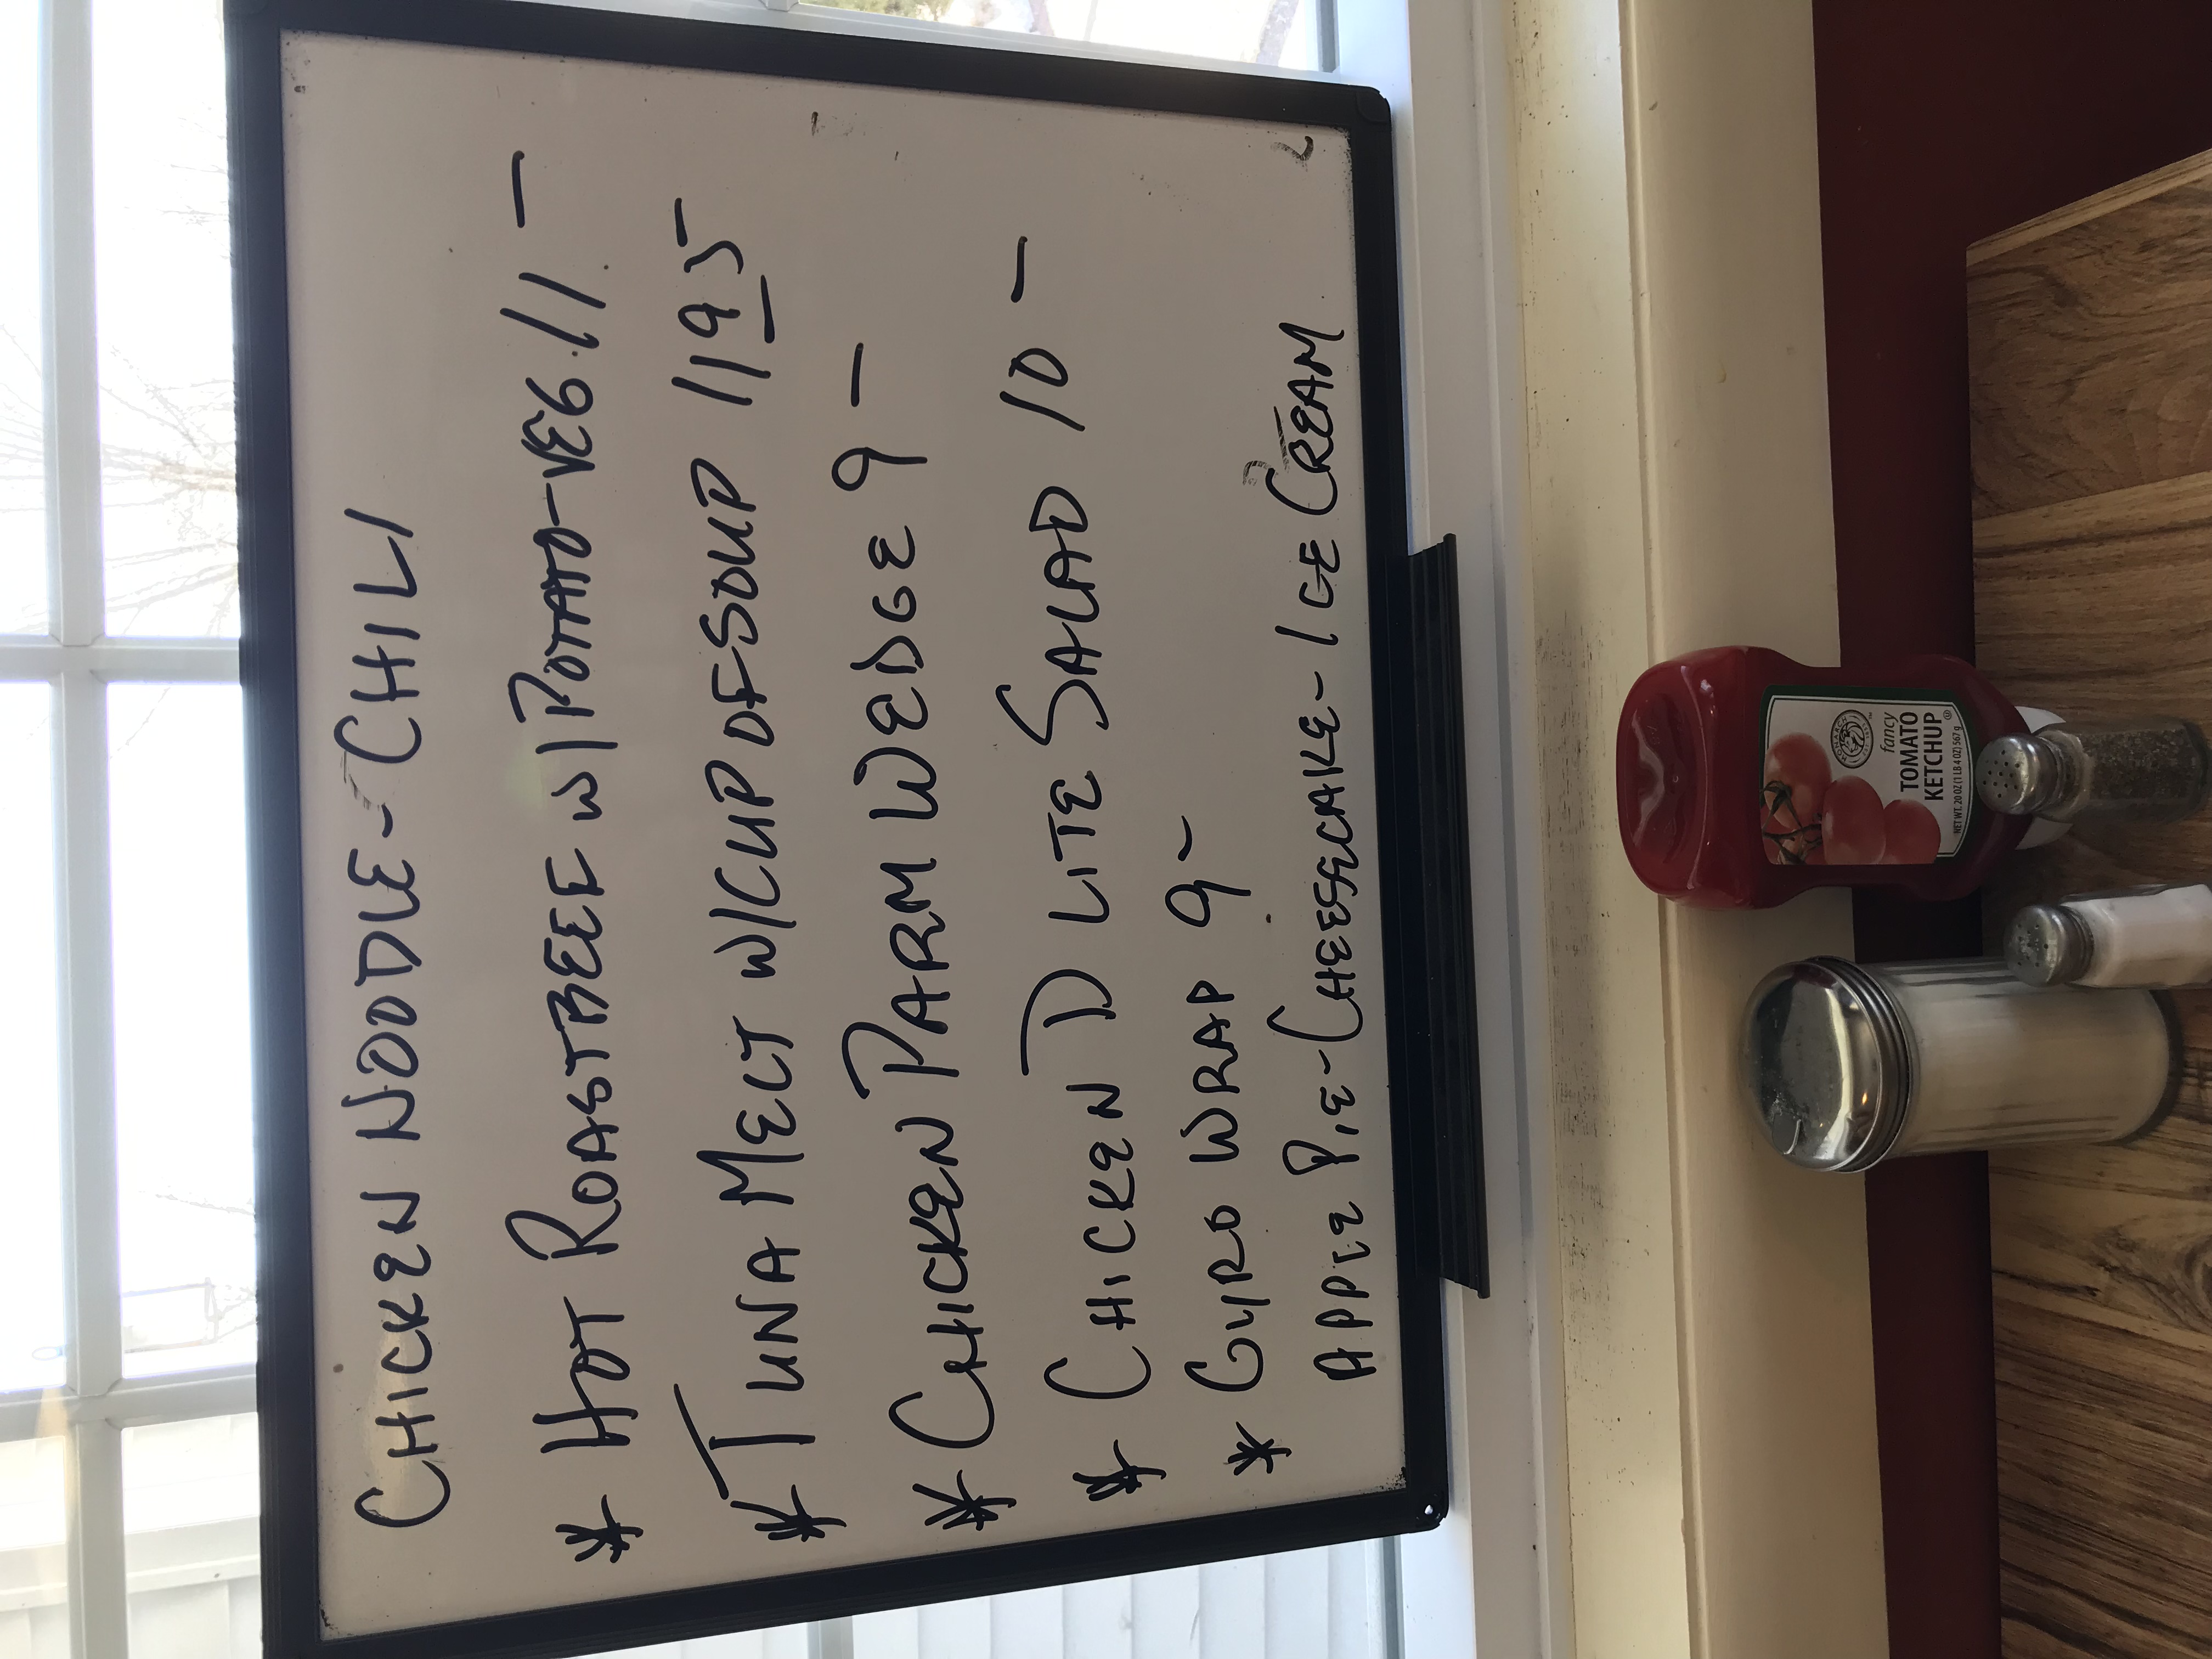 CHICKEN NOODLE - CHILI
* HOT ROASTBEEF W/ POTATO-VEG. 11 -
* TUNA MELT W/CUP OF SOUP 11 95
* CHICKEN PARM WEDGE 9 -
* CHICKEN D LITE SALAD 10 -
* GYRO WRAP 9 -
APPLE PIE - CHEESECAKE - ICE CREAM
MONARCH
fancy
TOMATO
KETCHUP
NET WT. 20 OZ (1 LB 4 OZ) 567 g